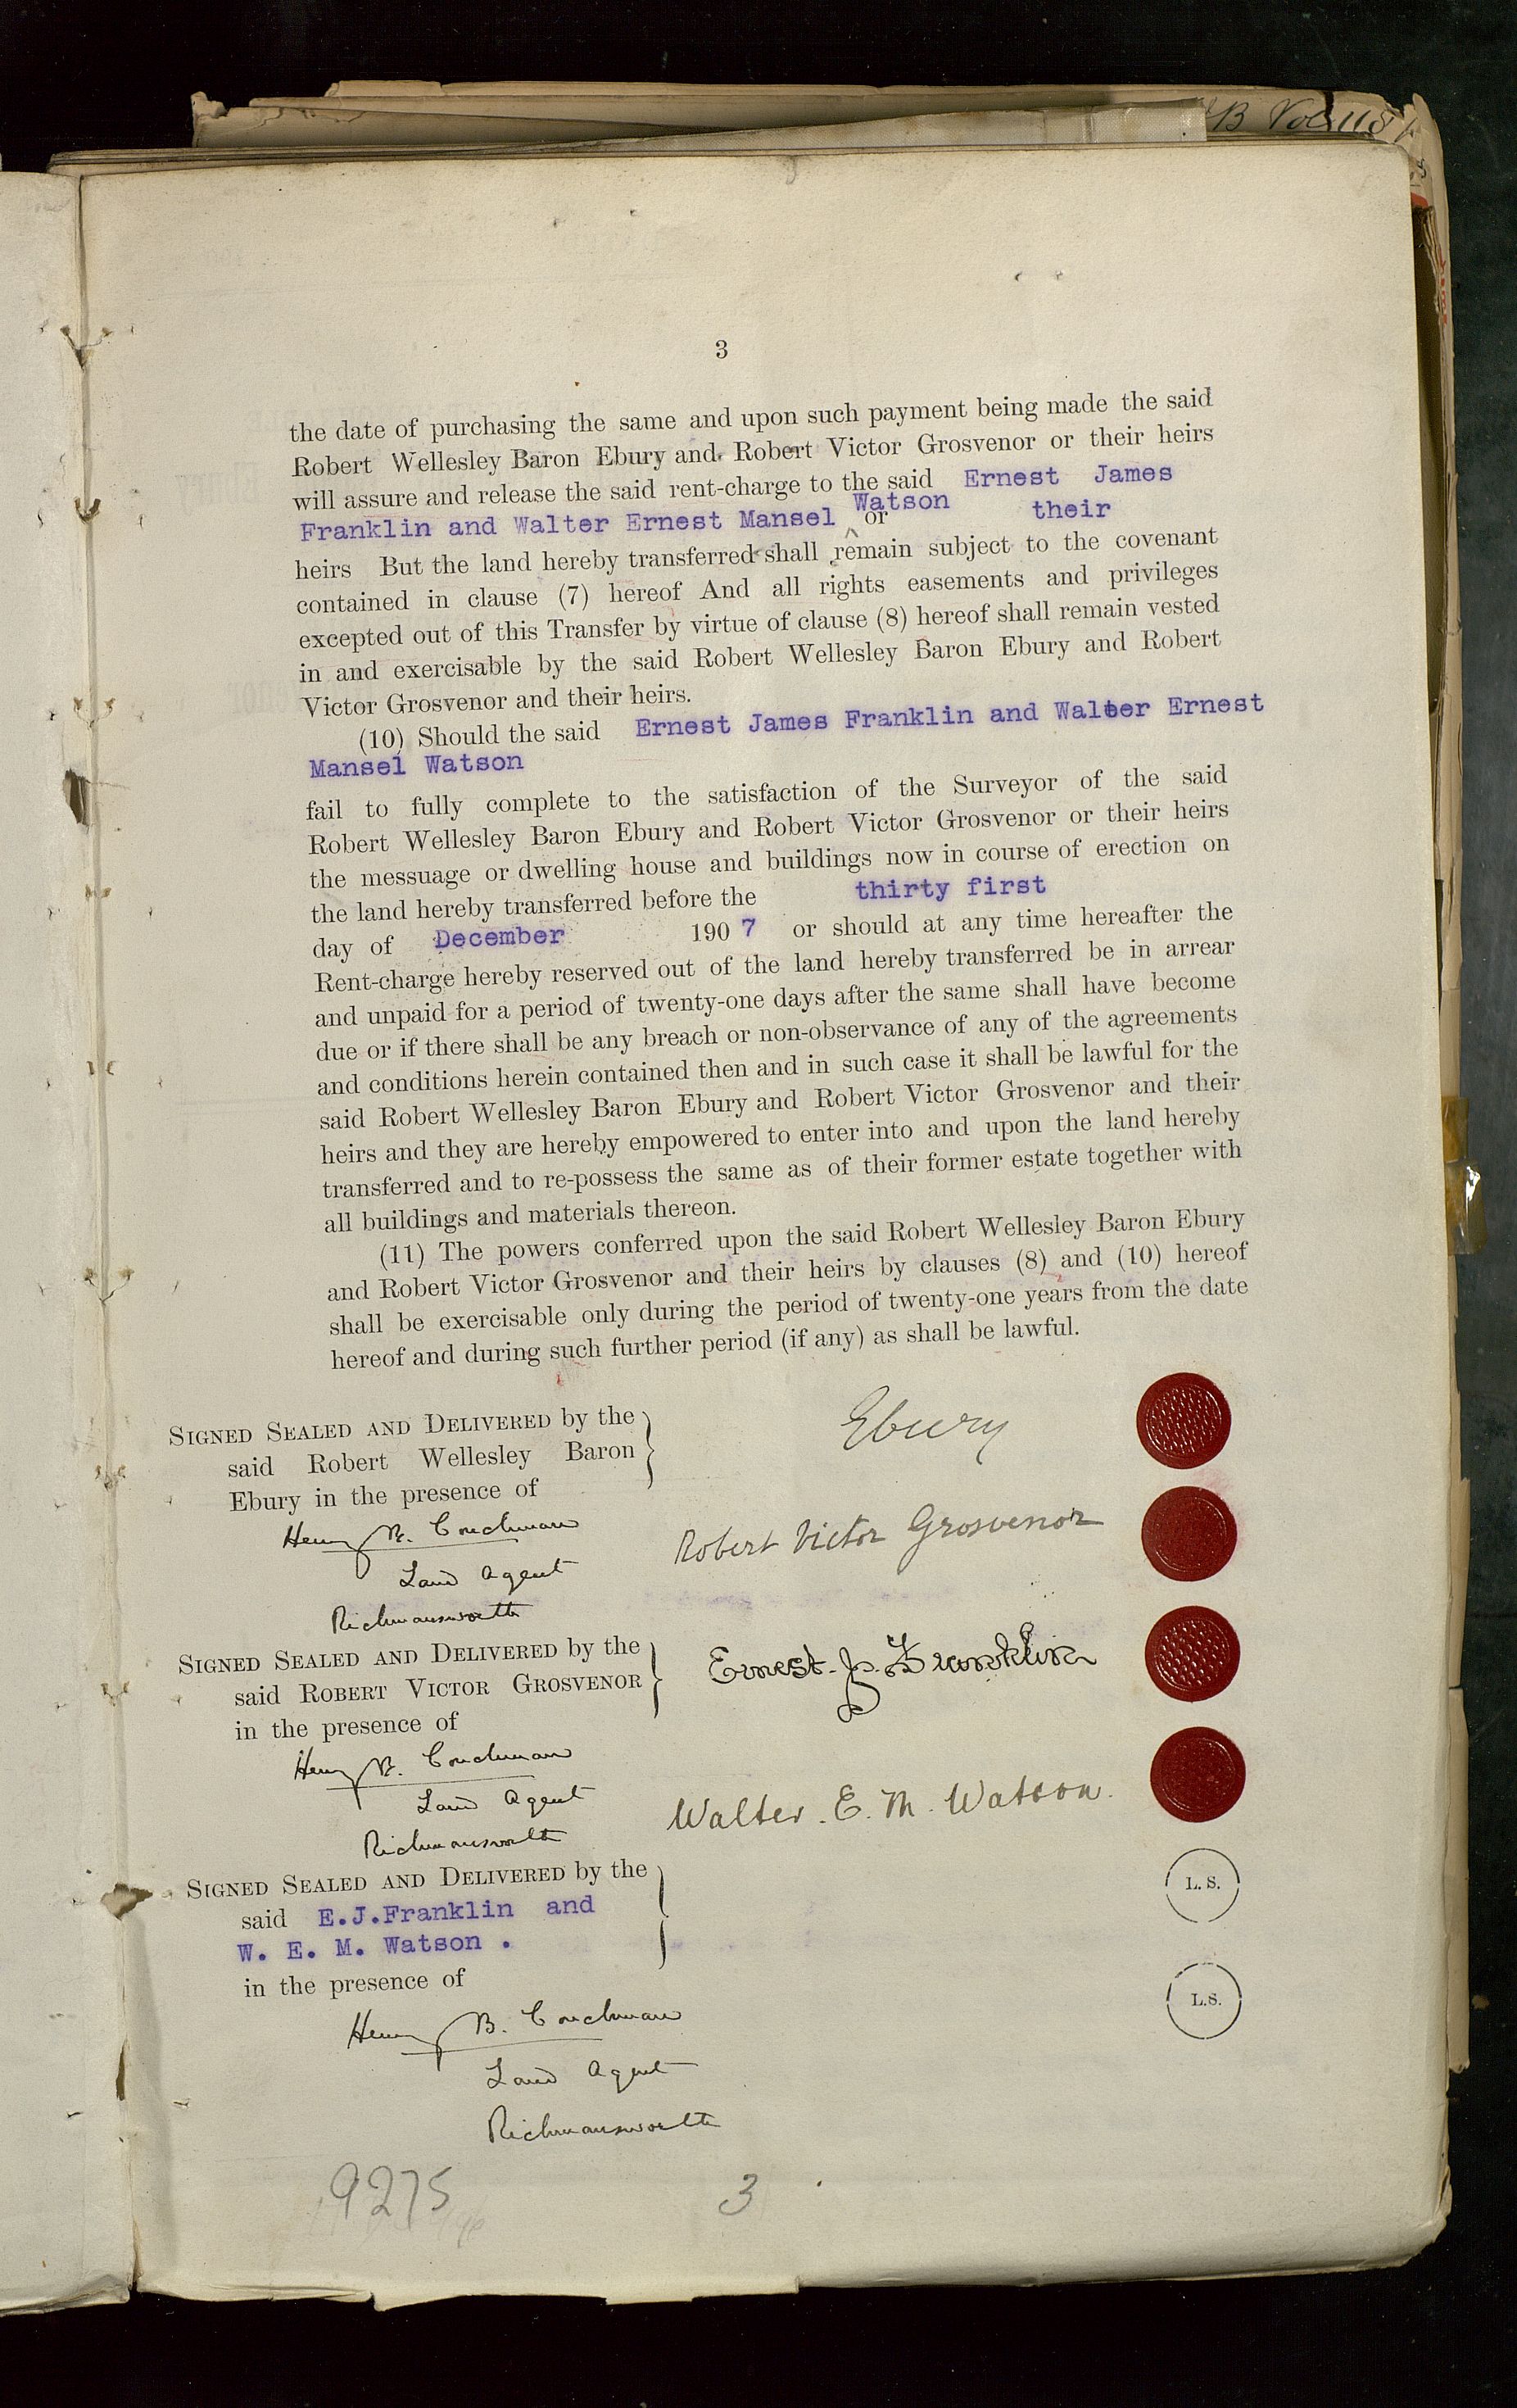 B Vol 118
3
the date of purchasing the same and upon such payment being made the said
Robert Wellesley Baron Ebury and Robert Victor Grosvenor or their heirs
will assure and release the said rent-charge to the said Ernest James
Franklin and Walter Ernest Mansel Watson or their
heirs But the land hereby transferred shall remain subject to the covenant
contained in clause (7) hereof And all rights easements and privileges
excepted out of this Transfer by virtue of clause (8) hereof shall remain vested
in and exercisable by the said Robert Wellesley Baron Ebury and Robert
Victor Grosvenor and their heirs.
(10) Should the said Ernest James Franklin and Walter Ernest
Mansel Watson
fail to fully complete to the satisfaction of the Surveyor of the said
Robert Wellesley Baron Ebury and Robert Victor Grosvenor or their heirs
the messuage or dwelling house and buildings now in course of erection on
the land hereby transferred before the thirty first
day of December 1907 or should at any time hereafter the
Rent-charge hereby reserved out of the land hereby transferred be in arrear
and unpaid for a period of twenty-one days after the same shall have become
due or if there shall be any breach or non-observance of any of the agreements
and conditions herein contained then and in such case it shall be lawful for the
said Robert Wellesley Baron Ebury and Robert Victor Grosvenor and their
heirs and they are hereby empowered to enter into and upon the land hereby
transferred and to re-possess the same as of their former estate together with
all buildings and materials thereon.
(11) The powers conferred upon the said Robert Wellesley Baron Ebury
and Robert Victor Grosvenor and their heirs by clauses (8) and (10) hereof
shall be exercisable only during the period of twenty-one years from the date
hereof and during such further period (if any) as shall be lawful.
SIGNED SEALED AND DELIVERED by the
said Robert Wellesley Baron
Ebury in the presence of
Henry B. Couchman
Land Agent
Rickmansworth
Ebury
Robert Victor Grosvenor
SIGNED SEALED AND DELIVERED by the
said ROBERT VICTOR GROSVENOR
in the presence of
Henry B. Couchman
Land Agent
Rickmansworth
Ernest J. Franklin
Walter. E. M. Watson.
SIGNED SEALED AND DELIVERED by the
said E.J.Franklin and
W. E. M. Watson .
in the presence of
Henry B. Couchman
Land Agent
Rickmansworth
L. S.
L.S.
9275
3